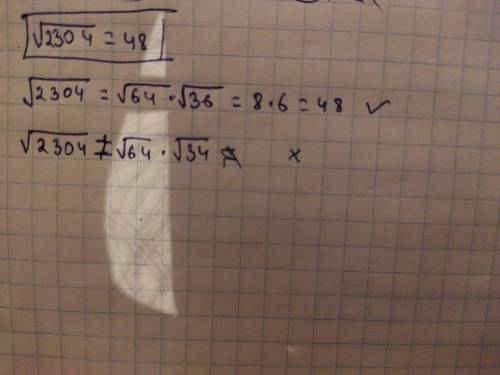 √2304 = 48
√2304 = √64 · √36 = 8 · 6 = 48 ✓
√2304 ≠ √64 · √34 ×